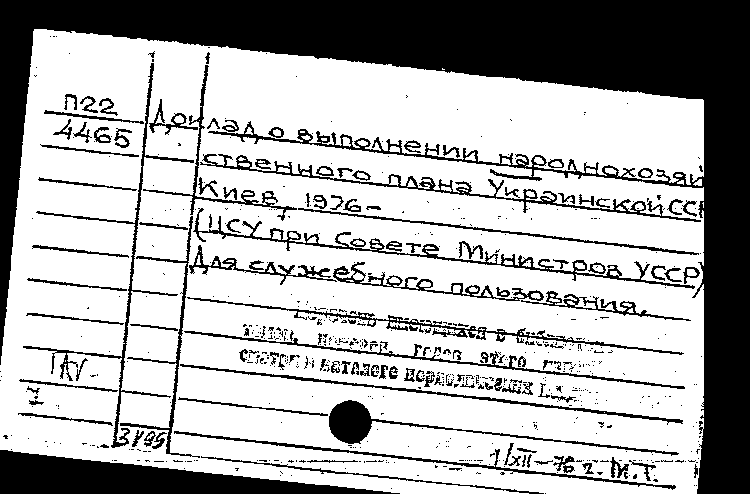 П22
4465
Доклад о выполнении народнохозяй
ственного плана Украинской ССР
Киев, 1976-
(ЦСУ при Совете Министров УССР)
Для служебного пользования.
Перечень имеющихся в
томов, номеров, годов этого
смотри в каталоге
1/XII-76 г. М.Т.